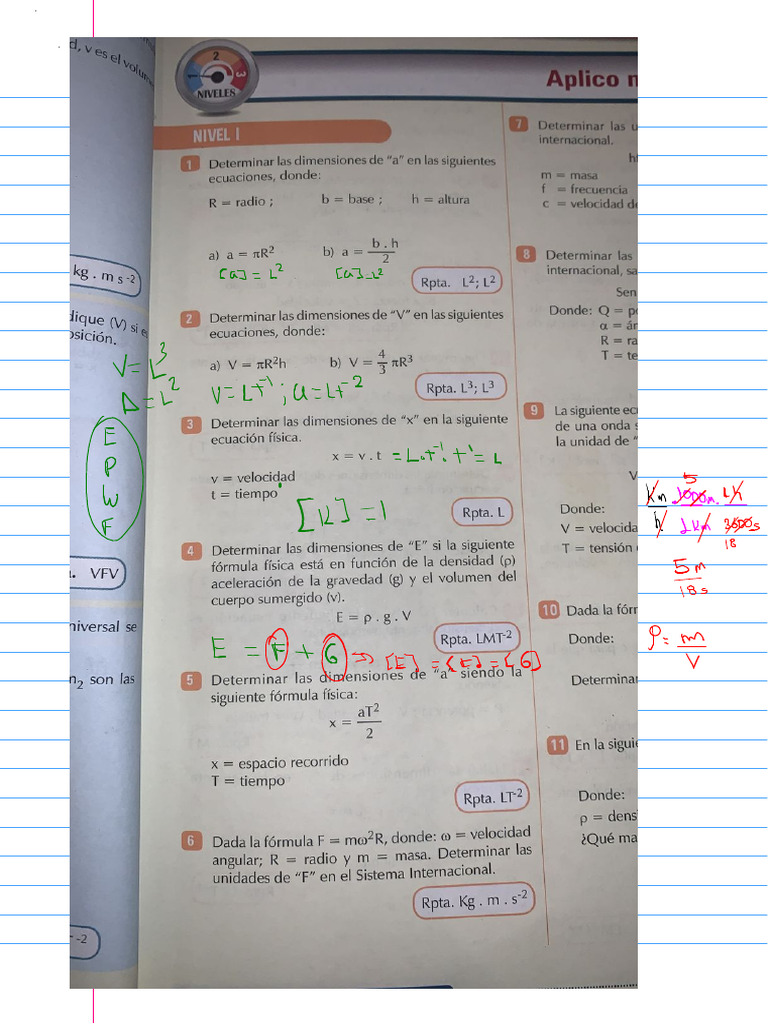 d, v es el volum
kg . m s-2
dique (V) si e
osición.
V = L³
A = L²
E
P
W
F
. VFV
niversal se
n₂ son las
-2
1
2
3
NIVELES
Aplico m
NIVEL I
1 Determinar las dimensiones de “a” en las siguientes
ecuaciones, donde:
R = radio ; b = base ; h = altura
a) a = πR² b) a = b . h / 2
[a] = L² [a] = L²
Rpta. L²; L²
2 Determinar las dimensiones de “V” en las siguientes
ecuaciones, donde:
a) V = πR²h b) V = 4/3 πR³
V = Lt⁻¹ ; a = Lt⁻²
Rpta. L³; L³
3 Determinar las dimensiones de “x” en la siguiente
ecuación física.
x = v . t = L.t⁻¹. t¹ = L
v = velocidad
t = tiempo
[K] = 1
Rpta. L
4 Determinar las dimensiones de “E” si la siguiente
fórmula física está en función de la densidad (ρ)
aceleración de la gravedad (g) y el volumen del
cuerpo sumergido (v).
E = ρ . g . V
Rpta. LMT-2
E = F + G => [E] = [F] = [G]
5 Determinar las dimensiones de “a” siendo la
siguiente fórmula física:
x = aT² / 2
x = espacio recorrido
T = tiempo
Rpta. LT-2
6 Dada la fórmula F = mω²R, donde: ω = velocidad
angular; R = radio y m = masa. Determinar las
unidades de “F” en el Sistema Internacional.
Rpta. Kg . m . s-2
7 Determinar las u
internacional.
hf
m = masa
f = frecuencia
c = velocidad de
8 Determinar las
internacional, sa
Sen
Donde: Q = po
α = án
R = ra
T = te
9 La siguiente ecu
de una onda s
la unidad de “
V
Donde:
V = velocida
T = tensión
10 Dada la fórm
Donde:
Determinar
11 En la siguie
Donde:
ρ = dens
¿Qué ma
5
km 1000m 1h
h 1km 3600s
18
5 m
18 s
ρ = m
V